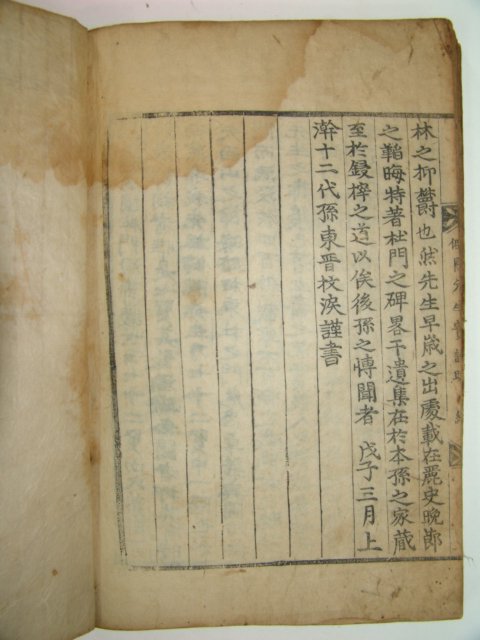 林之抑欝也然先生早歲之出處載在麗史晚節
之韜晦特著杜門之碑畧干遺集在於本孫之家藏
至於鋟榟之道以俟後孫之愽聞者 戊子三月上
澣十二代孫東晋抆淚謹書